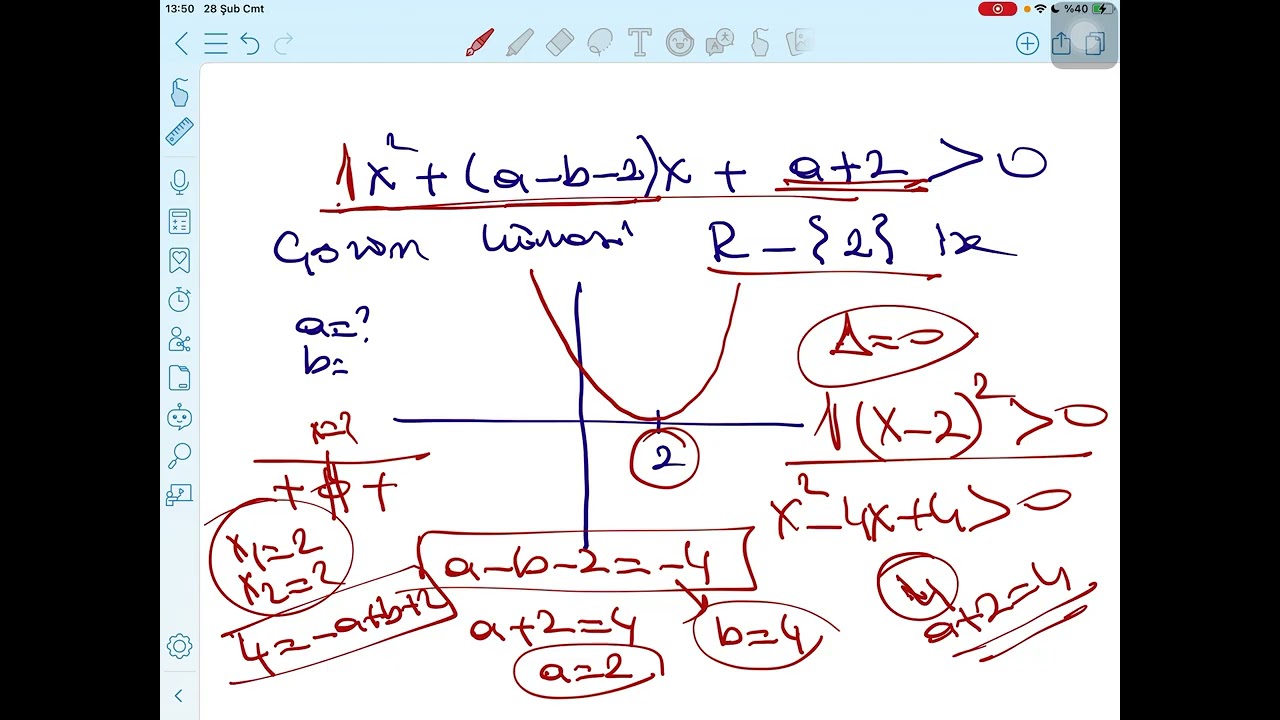 13:50 28 Şub Cmt %40
1x² + (a-b-2)x + a+2 > 0
Çözüm kümesi R - {2} ise
a=?
b=
Δ=0
1(x-2)² > 0
x=2
+ +
2
x²-4x+4>0
x₁=2
x₂=2
a-b-2=-4
4=-a+b+2
a+2=4
b=4
a+2=4
a=2